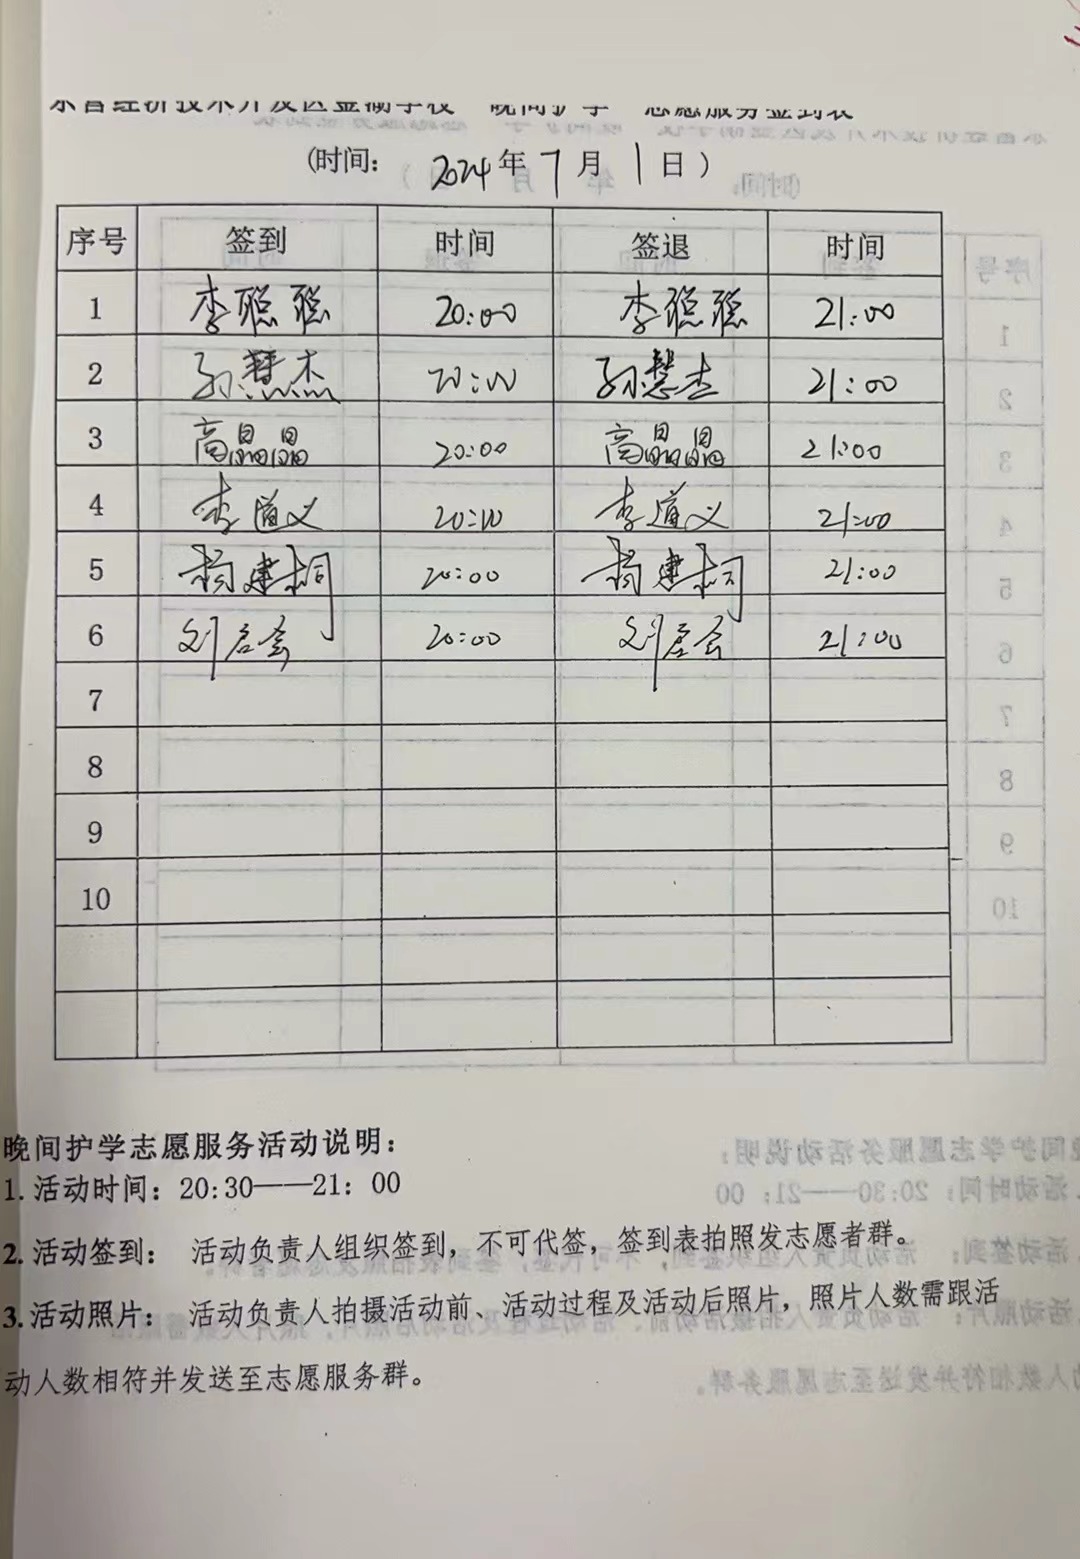 东营经济技术开发区金湖学校“晚间护学”志愿服务签到表
(时间: 2024年7月1日)
序号 签到 时间 签退 时间
1 李聪聪 20:00 李聪聪 21:00
2 孙慧杰 20:00 孙慧杰 21:00
3 高晶晶 20:00 高晶晶 21:00
4 李道义 20:00 李道义 21:00
5 杨建桐 20:00 杨建桐 21:00
6 刘启会 20:00 刘启会 21:00
7
8
9
10
晚间护学志愿服务活动说明:
1.活动时间: 20:30——21: 00
2.活动签到: 活动负责人组织签到, 不可代签, 签到表拍照发志愿者群。
3.活动照片: 活动负责人拍摄活动前、活动过程及活动后照片, 照片人数需跟活
动人数相符并发送至志愿服务群。